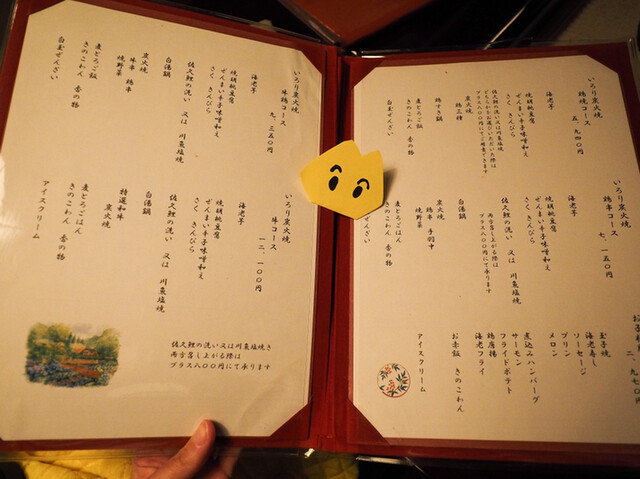 いろり炭火焼
鶏焼コース
五、九四〇円
海老芋
焼胡桃豆腐
ぜんまい辛子味噌和え
さく きんぴら
佐久鯉の洗い又は川魚塩焼
プラス八〇〇円にてご用意できます
鶏すき鍋
鶏三種
麦とろご飯
きのこわん 香の物
白玉ぜんざい
いろり炭火焼
鶏串コース
七、一五〇円
海老芋
焼胡桃豆腐
ぜんまい辛子味噌和え
さく きんぴら
佐久鯉の洗い 又は 川魚塩焼
両方召し上がる際は
プラス八〇〇円にて承ります
白湯鍋
炭火焼
鶏串 手羽中
焼野菜
麦とろごはん
きのこわん 香の物
アイスクリーム
二、九七〇円
玉子焼
海老寿し
ソーセージ
プリン
メロン
煮込みハンバーグ
サーモン
フライドポテト
鶏唐揚
海老フライ
お赤飯 きのこわん
アイスクリーム
いろり炭火焼
牛鶏コース
九、三五〇円
海老芋
焼胡桃豆腐
ぜんまい辛子味噌和え
さく きんぴら
佐久鯉の洗い 又は 川魚塩焼
白湯鍋
炭火焼
牛串 鶏串
焼野菜
麦とろご飯
きのこわん 香の物
白玉ぜんざい
いろり炭火焼
牛コース
一二、一〇〇円
海老芋
焼胡桃豆腐
ぜんまい辛子味噌和え
さく きんぴら
佐久鯉の洗い 又は 川魚塩焼
白湯鍋
炭火焼
特選和牛
麦とろごはん
きのこわん 香の物
アイスクリーム
佐久鯉の洗い又は川魚塩焼き
両方召し上がる際は
プラス八〇〇円にて承ります